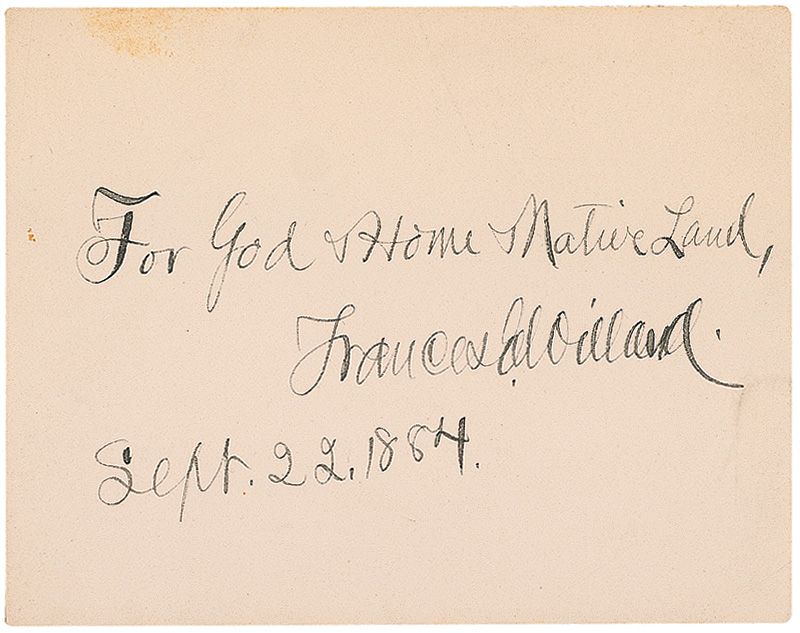 For God & Home & Native Land,
Frances E. Willard.
Sept. 22. 1884.